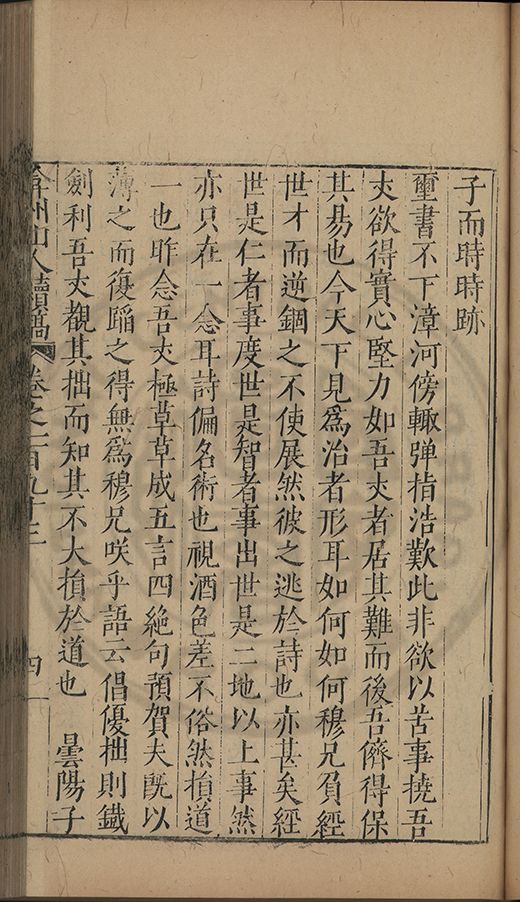 子而時時跡
璽書不下漳河傍輙弹指浩歎此非欲以苦事撓吾
夫欲得實心堅力如吾夫者居其難而後吾儕得保
其昜也今天下見爲治者形耳如何如何穆兄負經
世才而逆錮之不使展然彼之逃於詩也亦甚矣經
世是仁者事度世是智者事出世是二地以上事然
亦只在一念耳詩偏名術也視酒色差不俗然損道
一也昨念吾夫極草草成五言四絶句預賀夫既以
薄之而復蹈之得無爲穆兄咲乎語云倡優拙則鐵
劍利吾夫觀其拙而知其不大損於道也 曇陽子
弇州山人續稿 卷之一百九十三 四一